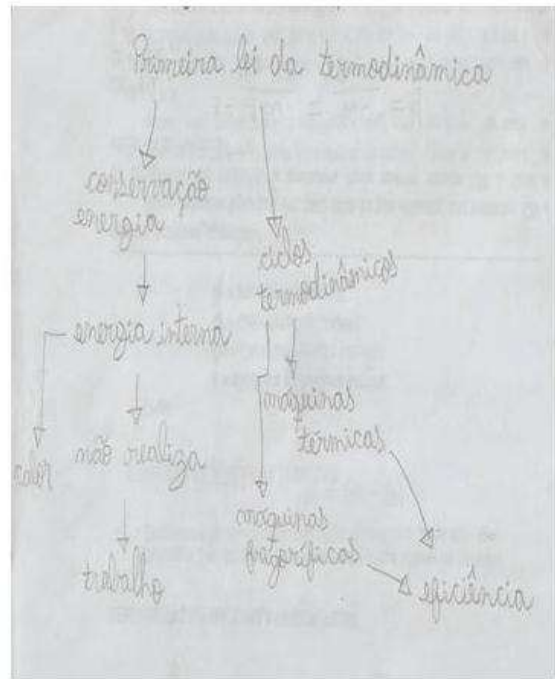 Primeira lei da termodinâmica
conservação
energia
ciclos
termodinâmicos
energia interna
máquinas
térmicas
calor
não realiza
máquinas
frigoríficas
trabalho
eficiência